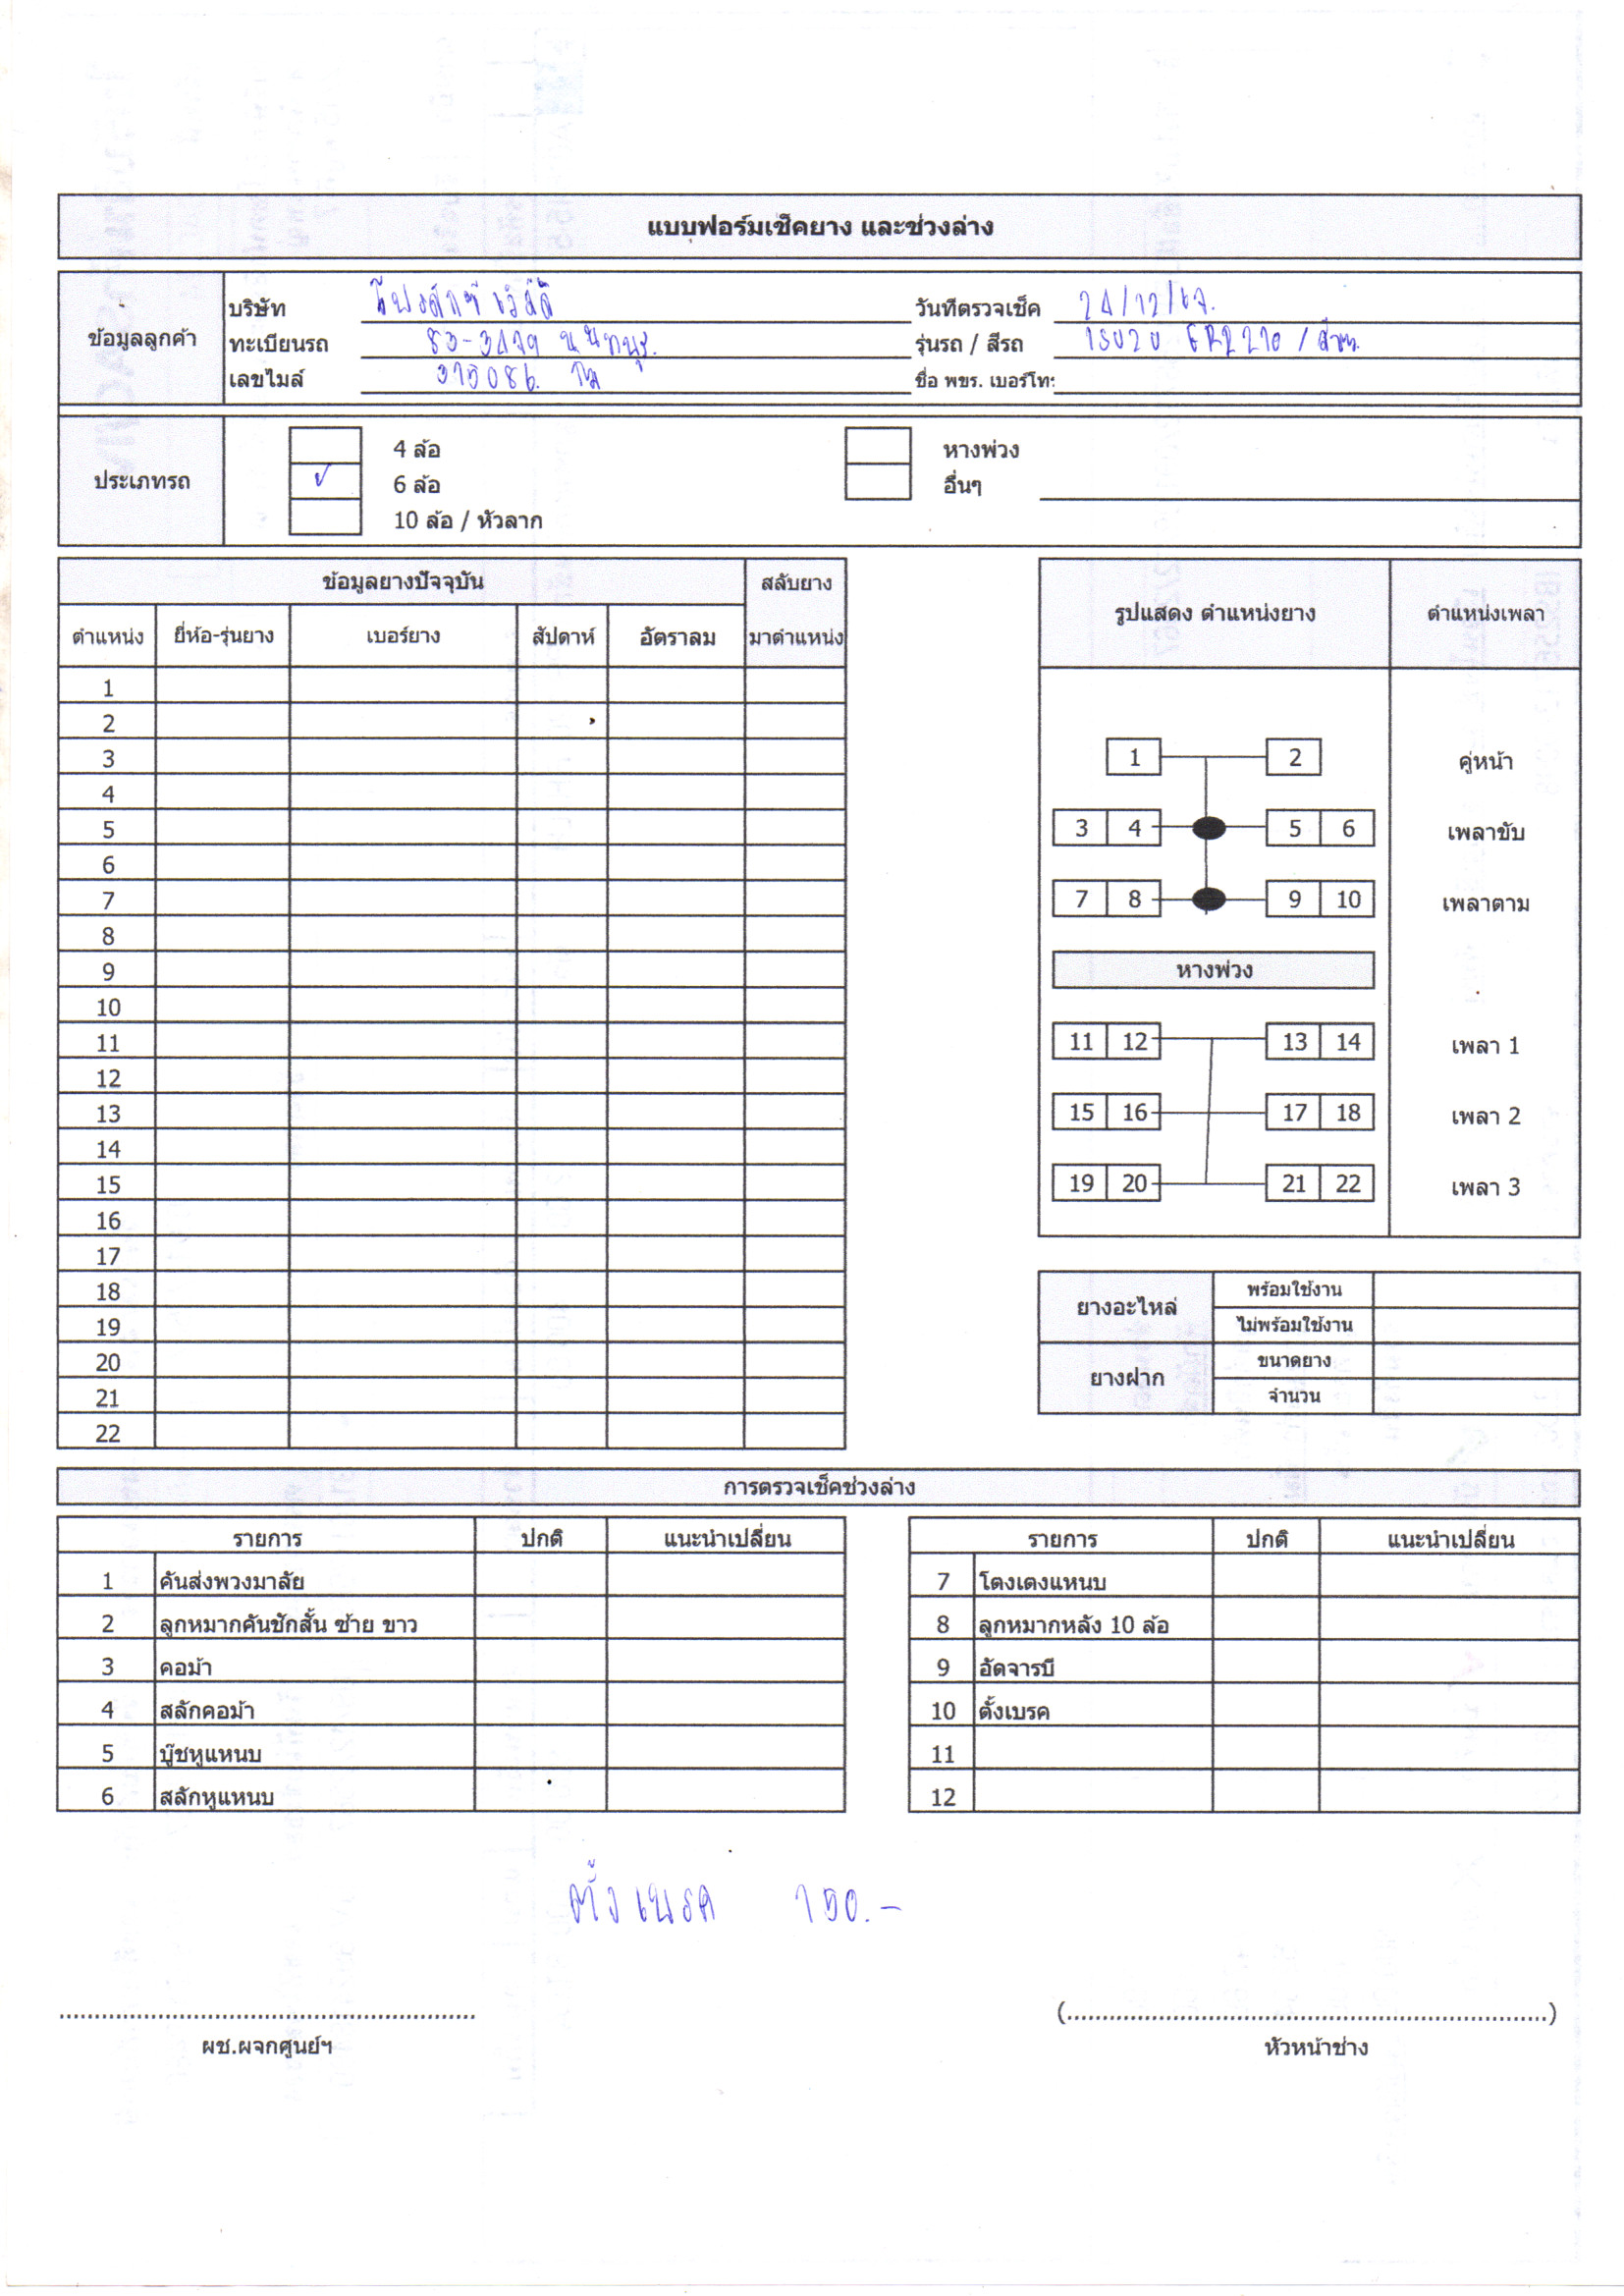 แบบฟอร์มเช็คยาง และช่วงล่าง
ข้อมูลลูกค้า
บริษัท
วันที่ตรวจเช็ค 24/12/67.
ทะเบียนรถ นนทบุรี
รุ่นรถ / สีรถ ISUZU 210 /
เลขไมล์ กม
ชื่อ พขร. เบอร์โทร
ประเภทรถ
4 ล้อ หางพ่วง
✓ 6 ล้อ อื่นๆ
10 ล้อ / หัวลาก
ข้อมูลยางปัจจุบัน สลับยาง
ตำแหน่ง ยี่ห้อ-รุ่นยาง เบอร์ยาง สัปดาห์ อัตราลม มาตำแหน่ง
1
2
3
4
5
6
7
8
9
10
11
12
13
14
15
16
17
18
19
20
21
22
รูปแสดง ตำแหน่งยาง ตำแหน่งเพลา
1 2 คู่หน้า
3 4 5 6 เพลาขับ
7 8 9 10 เพลาตาม
หางพ่วง
11 12 13 14 เพลา 1
15 16 17 18 เพลา 2
19 20 21 22 เพลา 3
ยางอะไหล่ พร้อมใช้งาน
ไม่พร้อมใช้งาน
ยางฝาก ขนาดยาง
จำนวน
การตรวจเช็คช่วงล่าง
รายการ ปกติ แนะนำเปลี่ยน
1 คันส่งพวงมาลัย
2 ลูกหมากคันชักสั้น ซ้าย ขาว
3 คอม้า
4 สลักคอม้า
5 บู๊ชหูแหนบ
6 สลักหูแหนบ
รายการ ปกติ แนะนำเปลี่ยน
7 โตงเตงแหนบ
8 ลูกหมากหลัง 10 ล้อ
9 อัดจารบี
10 ตั้งเบรค
11
12
ตั้งเบรค 150.-
ผช.ผจกศูนย์ฯ
(..........)
หัวหน้าช่าง